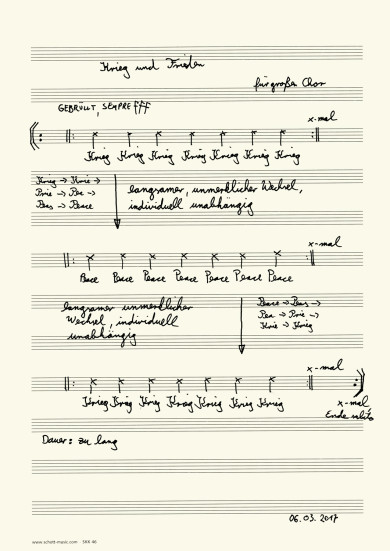 Krieg und Frieden
für großen Chor
GEBRÜLLT, SEMPRE fff
x-mal
Krieg Krieg Krieg Krieg Krieg Krieg Krieg
Krieg → Krie →
Prie → Pee →
Peas → Peace
langsamer, unmerklicher Wechsel,
individuell unabhängig
x-mal
Peace Peace Peace Peace Peace Peace Peace
langsamer unmerklicher
Wechsel, individuell
unabhängig
Peace → Peas →
Pea → Prie →
Krie → Krieg
x-mal
Krieg Krieg Krieg Krieg Krieg Krieg Krieg
x-mal
Ende
Dauer: zu lang
06.03.2017
www.schott-music.com SKK 46